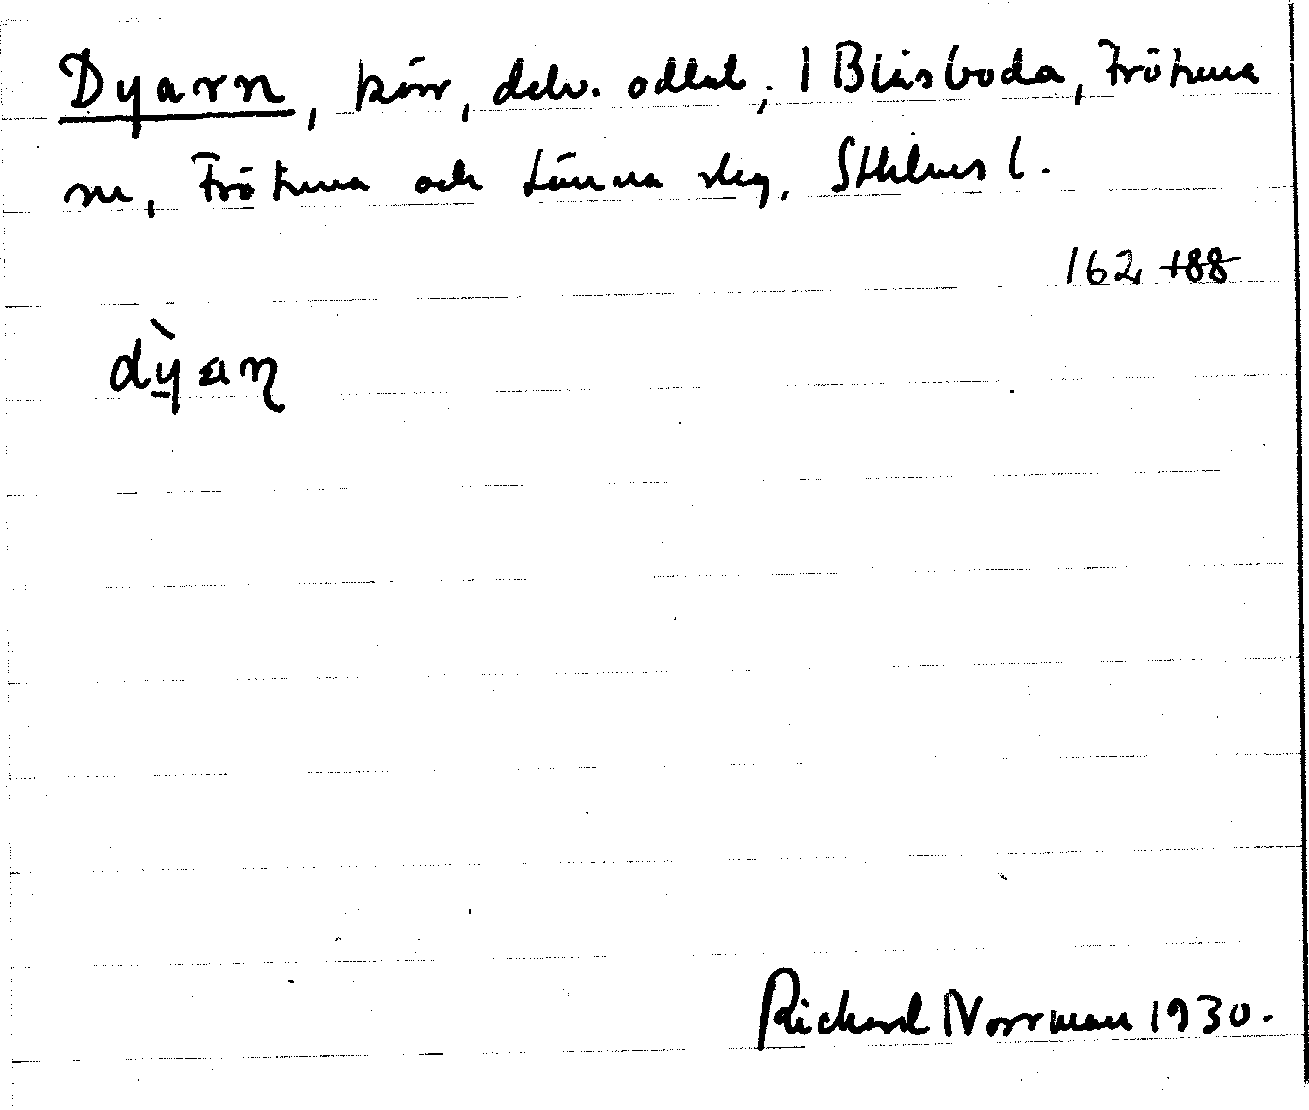 Dyarn, kärr, delv. odlat, 1 Blåsboda, Frötuna
sn, Frötuna och Länna skg, Sthlms l.
162 188
dỳ̖an
Richard Norrman 1930.